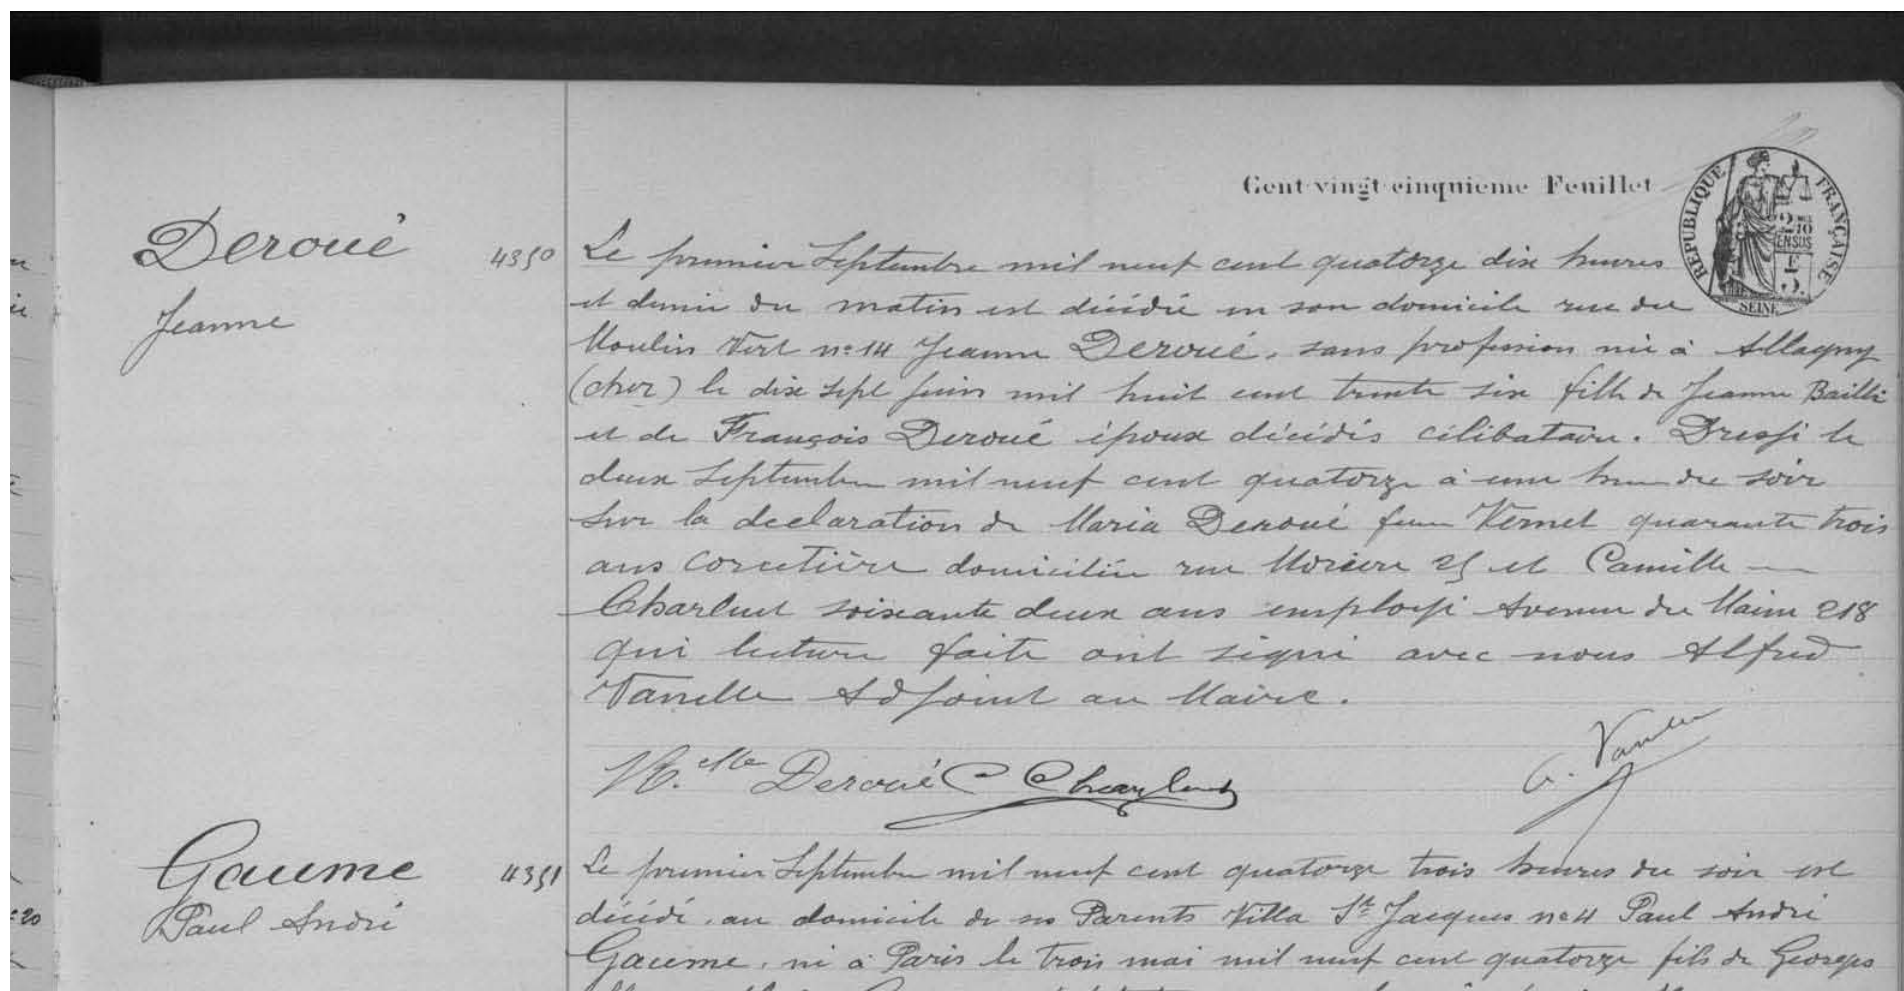 Cent vingt cinquieme Feuillet
RÉPUBLIQUE FRANÇAISE
2/10
EN SUS
SEINE
Deroué
Jeanne
4350
Le premier Septembre mil neuf cent quatorze dix heures
et demie du matin est décédée en son domicile rue du
Moulin Vert n° 14 Jeanne Deroué, sans profession née à Allogny
(cher) le dix sept juin mil huit cent trente six fille de Jeanne Bailli
et de François Deroué époux décédés célibataire. Dressé le
deux Septembre mil neuf cent quatorze à une heure du soir
sur la declaration de Maria Deroué femme Vernet quarante trois
ans corsetière domiciliée rue 25 et Camille
soixante deux ans employé Avenue du Maine 218
qui lecture faite ont signé avec nous Alfred
Adjoint au Maire.
Deroué C
Gaume
Paul André
4351
Le premier Septembre mil neuf cent quatorze trois heures du soir est
décédé, au domicile de ses Parents Villa St Jacques n° 4 Paul André
Gaume, né à Paris le trois mai mil neuf cent quatorze fils de Georges